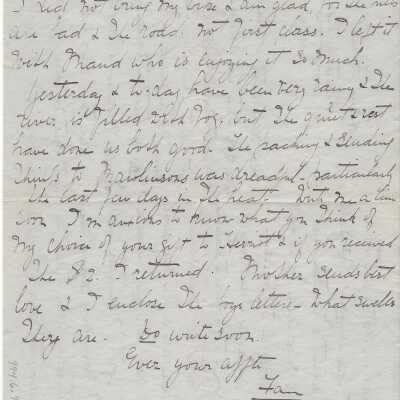 I did not bring my wise & am glad, for the hills
are bad & the road not first class. I left it
with Maud who is enjoying it so much.
Yesterday & to-day have been very rainy & the
river is filled with fog, but the quiet & rest
have done us both good. The packing & sending
things to Rawlinsons was dreadful - particularly
the last few days in the heat. Write me a line
soon I'm anxious to know what you think of
my choice of your gift to & if you received
the $2. I returned. Mother sends best
love & I enclose the boys letters - what swells
they are. Do write soon.
Ever your affte
Fan
994.6.